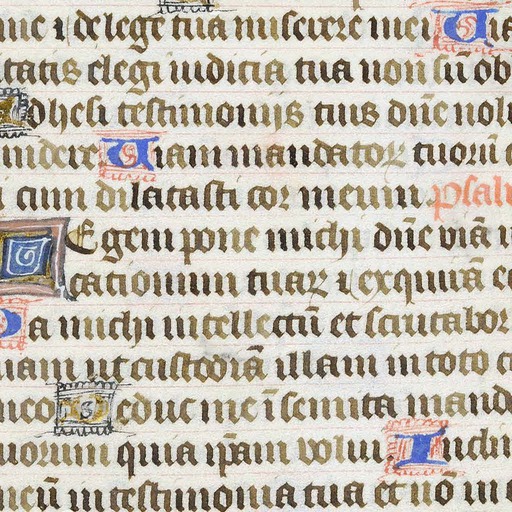 me ⁊ de lege tua miserere mei Via
itatis elegi iudicia tua nõ sũ ob
Adhesi testimoniis tuis dñe noli
undere Viam mandatoꝝ tuorũ c
cum dilatasti cor meum. Psal
Legem pone michi dñe viã i
cationum tuaꝝ ⁊ exquirã e
Da michi intellectũ et scrutabor
niam ut custodiã illam in toto c
meo Deduc me ĩ semita mand
uorum quia ipãm volui Inclin
meũ in testimonia tua et nõ in